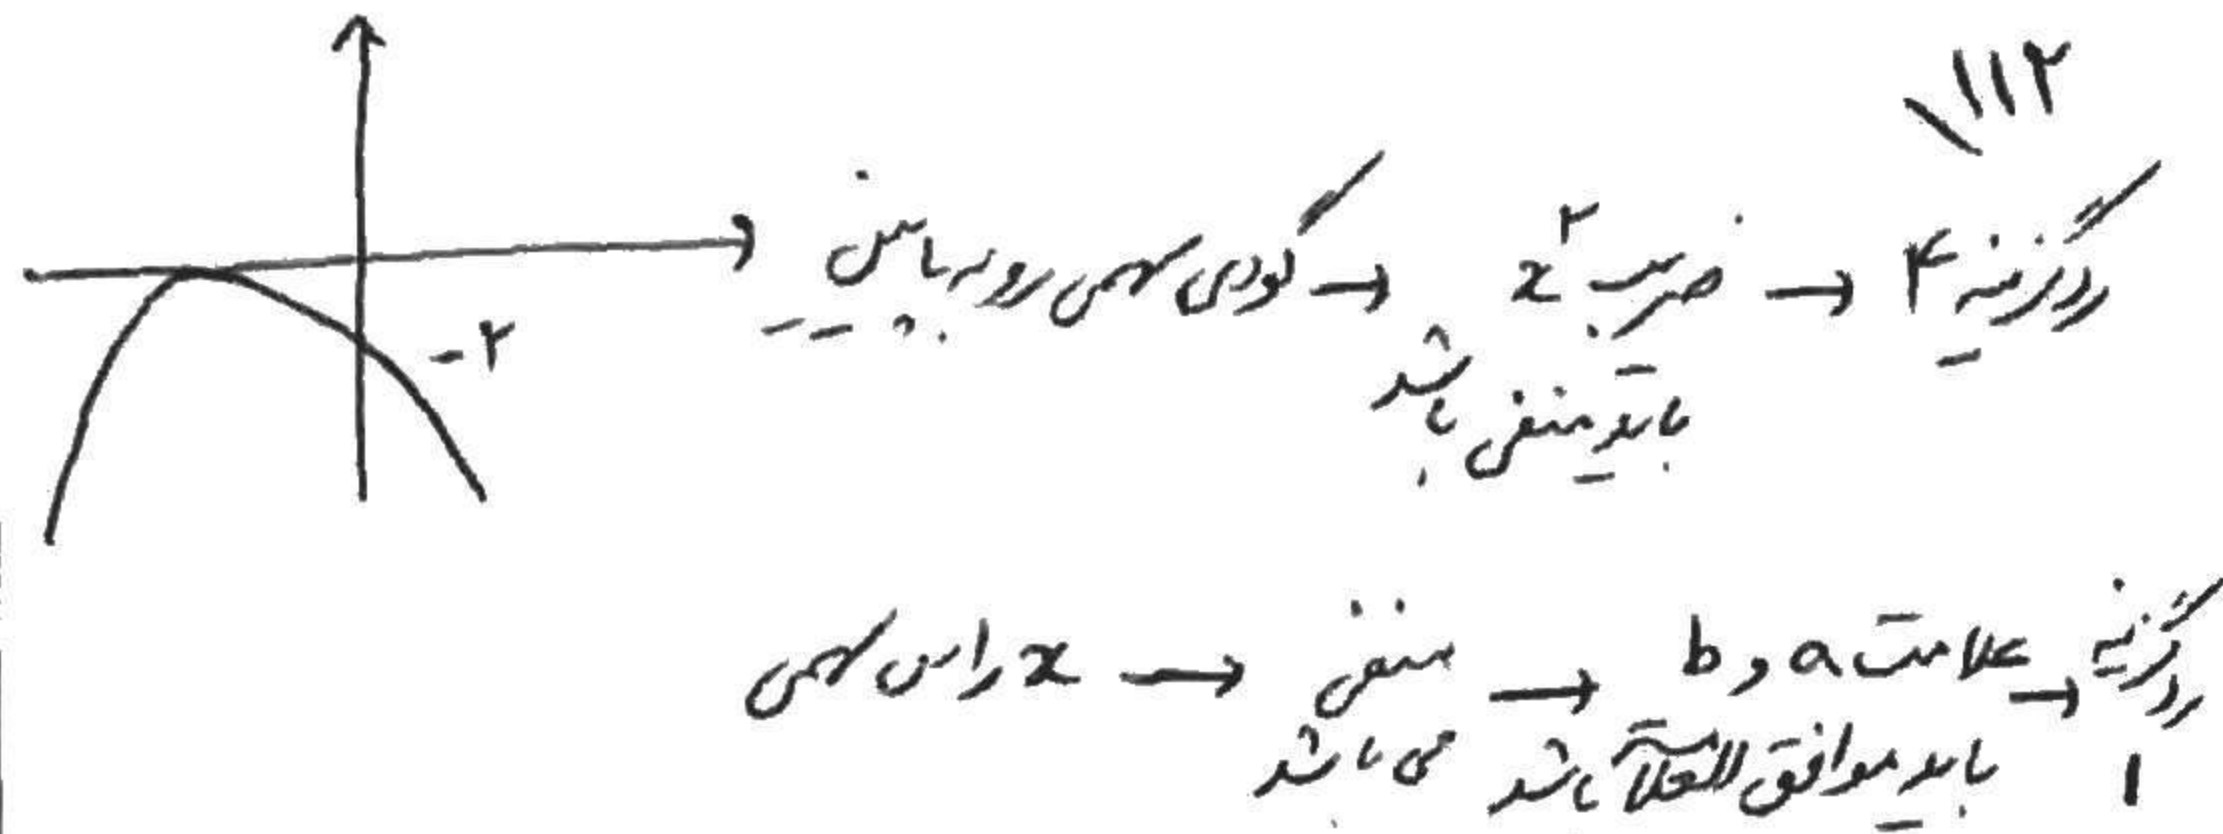 ۱۱۲
گودی سهمی رو به پایین → ضریب x² باید منفی باشد → رد گزینه ۴
-۲
x راس سهمی → منفی می باشد → علامت a و b باید موافق العلامت باشد → رد گزینه ۱